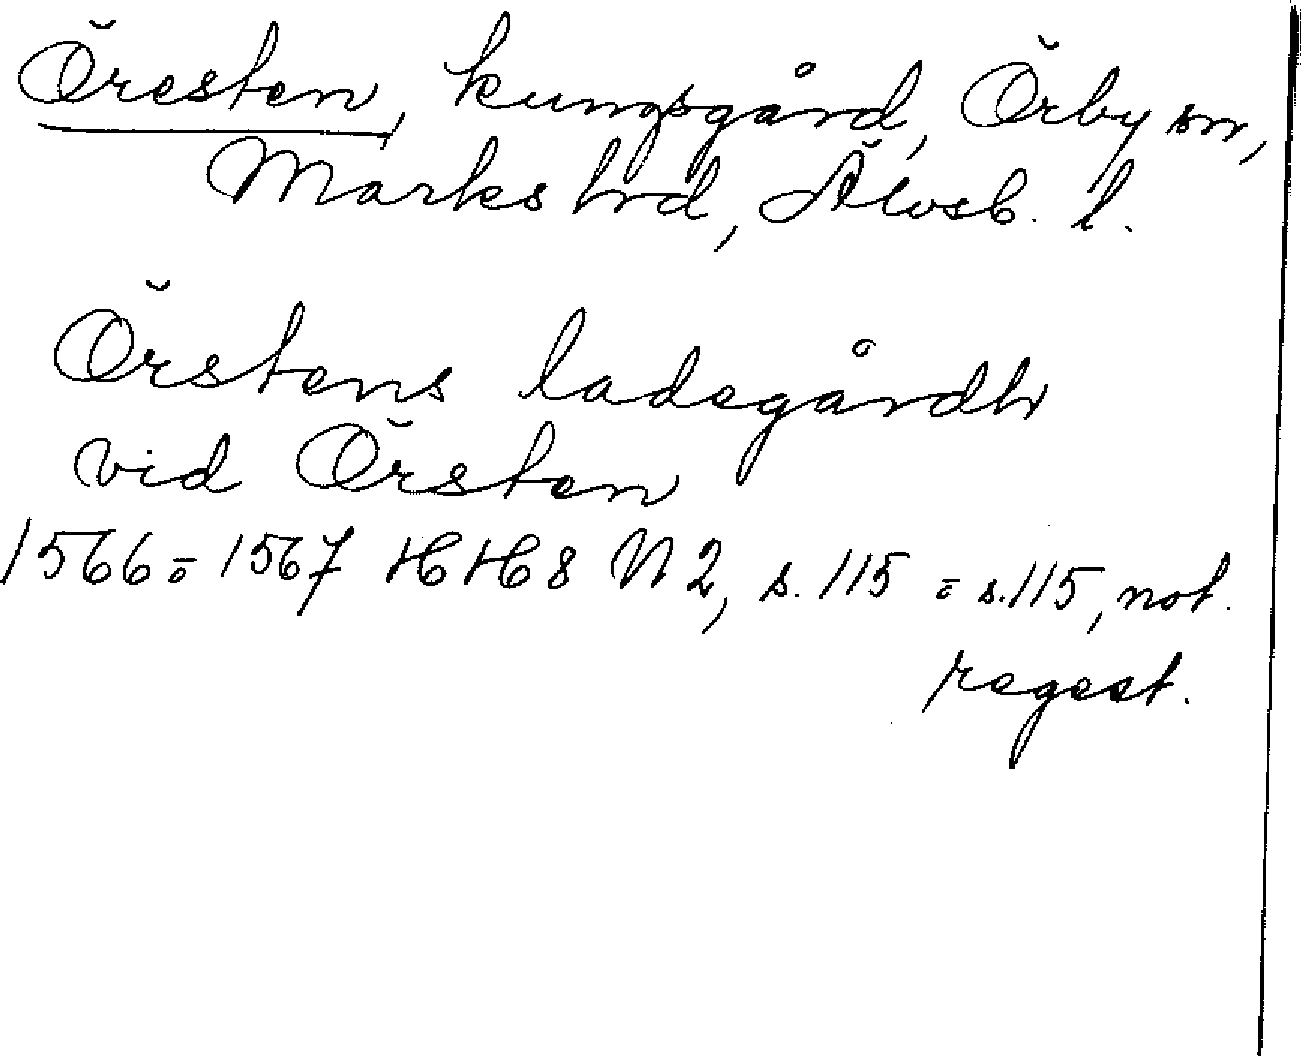 Öresten, kungsgård, Örby sn,
Marks hrd, Älvsb. l.
Örstens ladegårdh
vid Örsten
1566 = 1567 HH 8 N 2, s. 115 = s. 115, not.
regest.